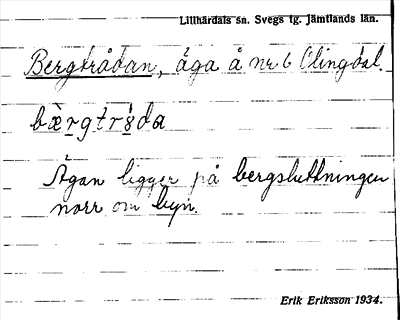 Lillhärdals sn. Svegs tg. Jämtlands län.
Bergtrådan, äga å nr 6 Olingdal.
bæ̀rgtr8da
Ägan ligger på bergsluttningen
norr om byn.
Erik Eriksson 1934.